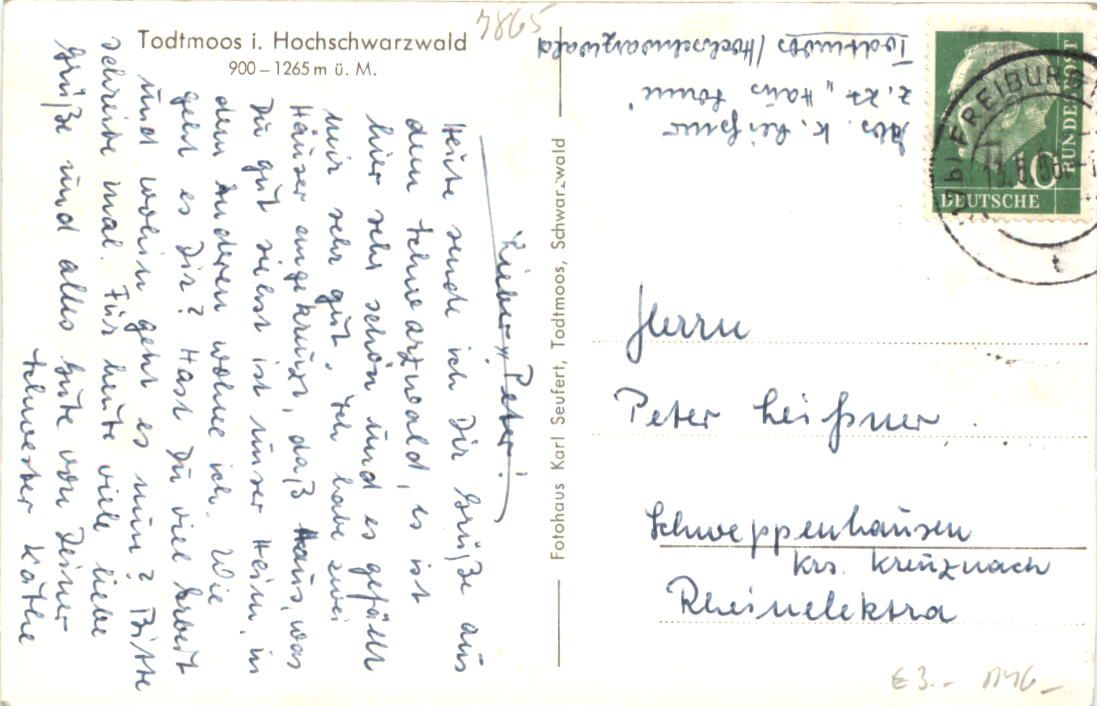 7865
Todtmoos i. Hochschwarzwald
900 – 1265 m ü. M.
Lieber Peter!
Heute sende ich Dir Grüße aus
dem Schwarzwald, es ist
hier sehr schön und es gefällt
mir sehr gut. Ich habe zwei
Häuser angekreuzt, daß Haus, was
Du gut siehst ist unser Heim, in
dem Anderen wohne ich. Wie
geht es Dir? Hast Du viel Arbeit
und wohin geht es nun? Bitte
schreibe mal. Für heute viele liebe
Grüße und alles Gute von Deiner
Schwester Käthe
Fotohaus Karl Seufert, Todtmoos, Schwarzwald
Abs. K. Leißner
z. Zt. „Haus
Todtmoos/Hochschwarzwald
FREIBURG
DEUTSCHE
BUNDESPOST
10
Herrn
Peter Leißner
Schweppenhausen
Krs. Kreuznach
Rheinelektra
€ 3.-